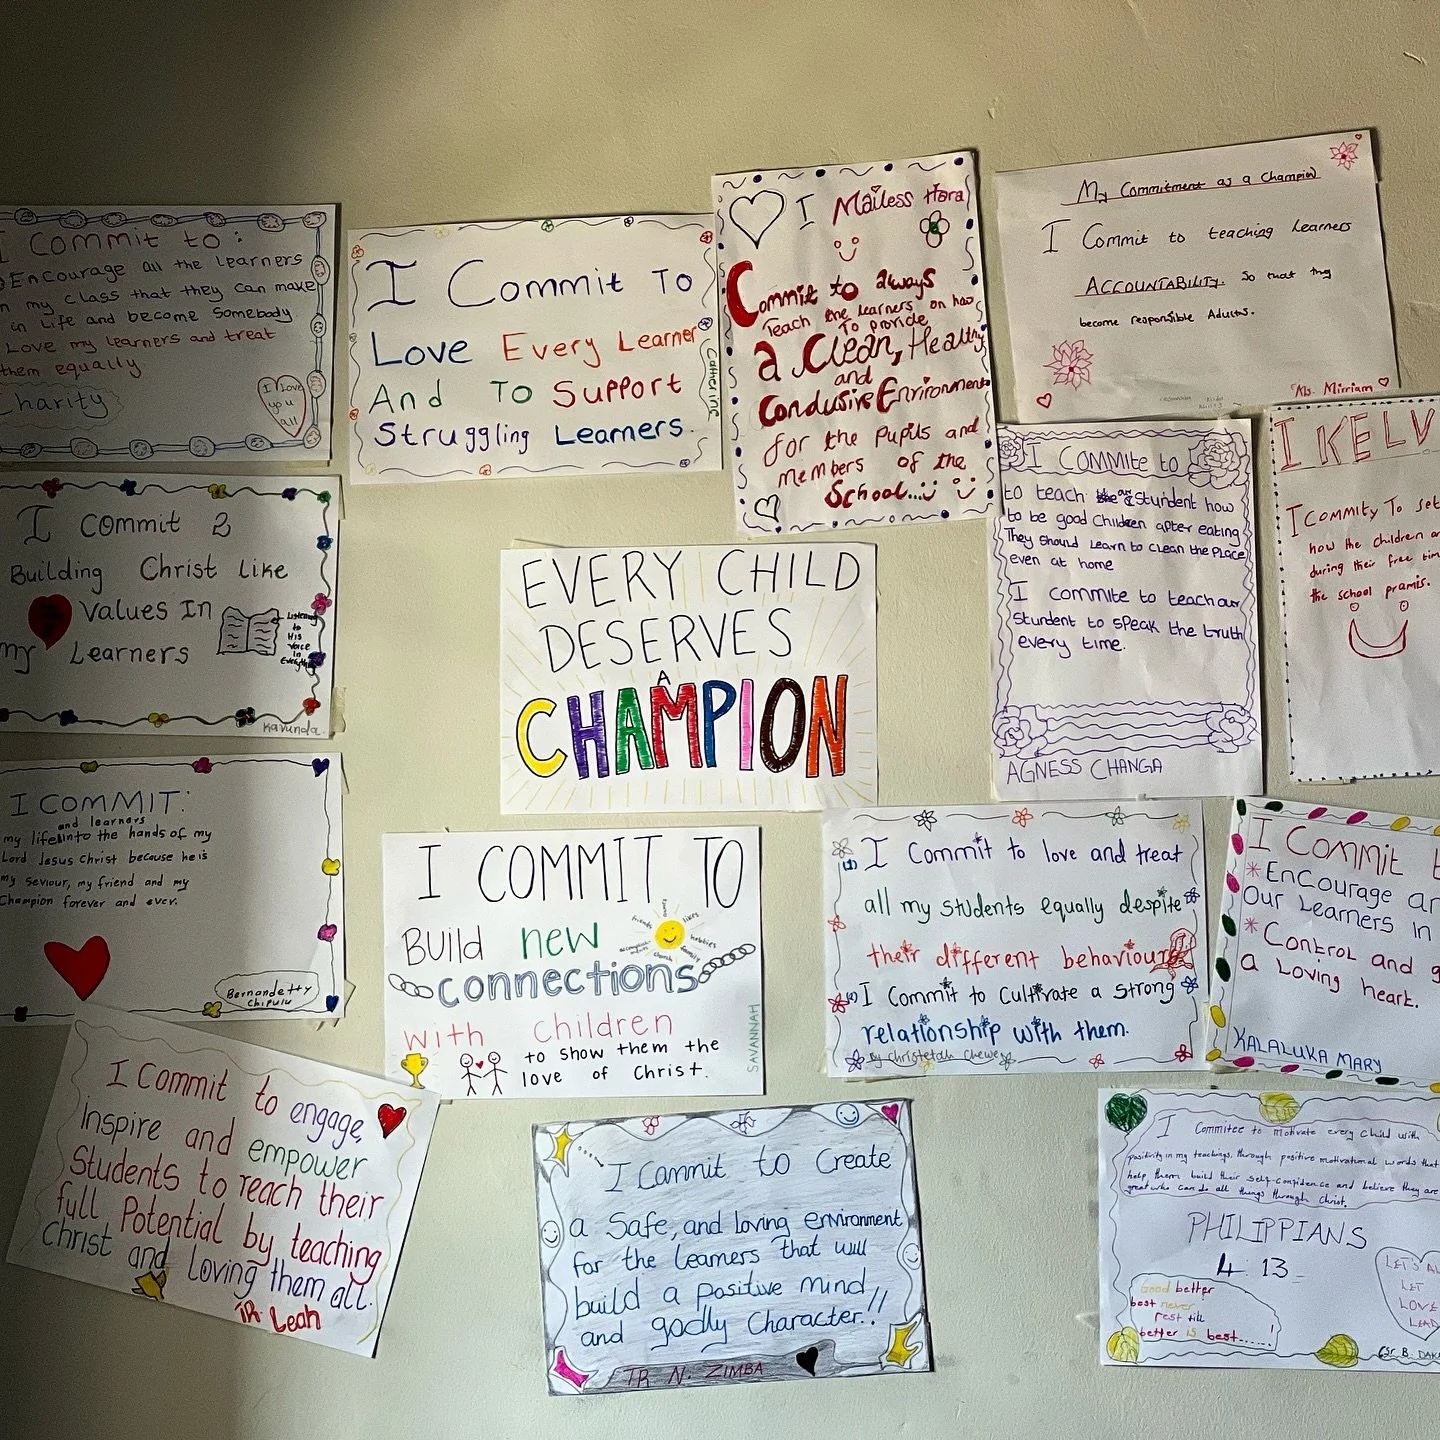 I Commit to:
Encourage all the learners
in my class that they can make
in life and become somebody
Love my learners and treat
them equally
Charity
I love
you
all
I Commit To
Love Every Learner
And To Support
Struggling Learners.
Catherine
I Mailess Hara
Commit to always
Teach the learners on how
To provide
a Clean, Healthy
and
Condusive Environment
for the Pupils and
members of the
School...
My Commitment as a Champion
I Commit to teaching learners
ACCOUNTABILITY. So that they
become responsible Adults.
Ms. Mirriam
I commit 2
Building Christ like
values In
my Learners
Listening
to
His
voice
in
Everything
Kavunda.
EVERY CHILD
DESERVES
A
CHAMPION
I COMMITE to
to teach our student how
to be good children after eating
They should learn to clean the place
even at home
I commite to teach our
student to speak the truth
every time.
AGNESS CHANGA
I KELV
I commity To set
how the children
during their free tim
the school pramis.
I COMMIT:
and learners
my life into the hands of my
Lord Jesus Christ because he is
my saviour, my friend and my
Champion forever and ever.
Bernandetty
Chipulu
I COMMIT TO
Build new
connections
friends
likes
hobbies
family
church
with children
to show them the
love of Christ.
SAVANNAH
(1) I Commit to love and treat
all my students equally despite
their different behaviours
(2) I Commit to Cultivate a strong
relationship with them.
By Christetah Chewe
I Commit t
* Encourage an
Our Learners in
* Control and g
a Loving heart.
KALALUKA MARY
I Commit to engage,
inspire and empower
Students to reach their
full Potential by teaching
Christ and loving them all.
TR. Leah
I Commit to Create
a Safe, and loving environment
for the learners that will
build a positive mind
and godly Character.!!
TR N. ZIMBA
I Commitee to motivate every child with
positivity in my teachings, through positive motivational words that
help them build their self-confidence and believe they are
great who can do all things through Christ.
PHILIPPIANS
4:13
Good better
best never
rest till
better is best......!
LET'S AL
LET
LOVE
LEAD
Sr. B. DAK